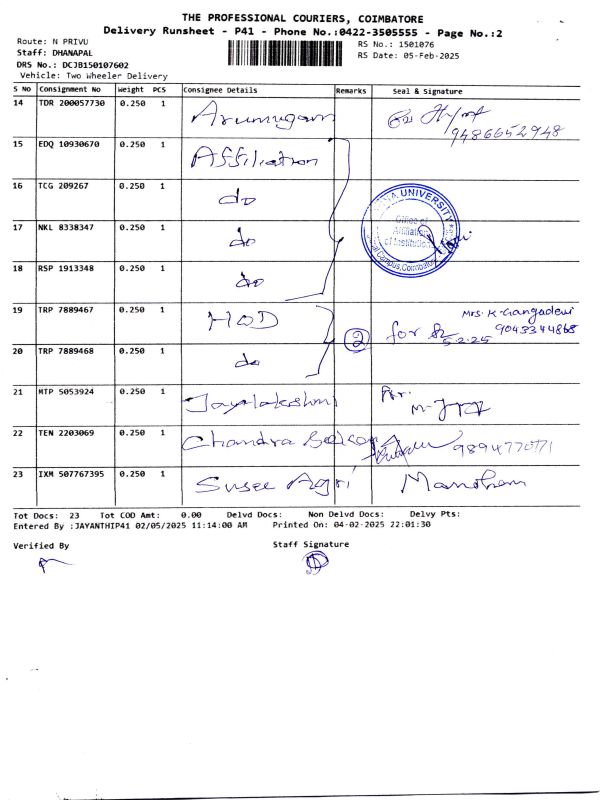 THE PROFESSIONAL COURIERS, COIMBATORE
Delivery Runsheet - P41 - Phone No.:0422-3505555 - Page No.:2
Route: N PRIVU
RS No.: 1501076
Staff: DHANAPAL
RS Date: 05-Feb-2025
DRS No.: DCJB150107602
Vehicle: Two Wheeler Delivery
S No Consignment No Weight PCS Consignee Details Remarks Seal & Signature
14 TDR 200057730 0.250 1 Arumugam 9486652948
15 EDQ 10930670 0.250 1 Affiliation
16 TCG 209267 0.250 1 do
UNIVERSITY
Office of
Affiliation
of Institutions
Campus, Coimbatore
17 NKL 8338347 0.250 1 do
18 RSP 1913348 0.250 1 do
19 TRP 7889467 0.250 1 HOD 2 for 5-2-25 Mrs. K. Gangadevi
9043344868
20 TRP 7889468 0.250 1 do
21 MTP 5053924 0.250 1 Jayalakshmi
22 TEN 2203069 0.250 1 Chandra
23 IXM 507767395 0.250 1 Susee Agri
Tot Docs: 23 Tot COD Amt: 0.00 Delvd Docs: Non Delvd Docs: Delvy Pts:
Entered By :JAYANTHIP41 02/05/2025 11:14:00 AM Printed On: 04-02-2025 22:01:30
Verified By Staff Signature